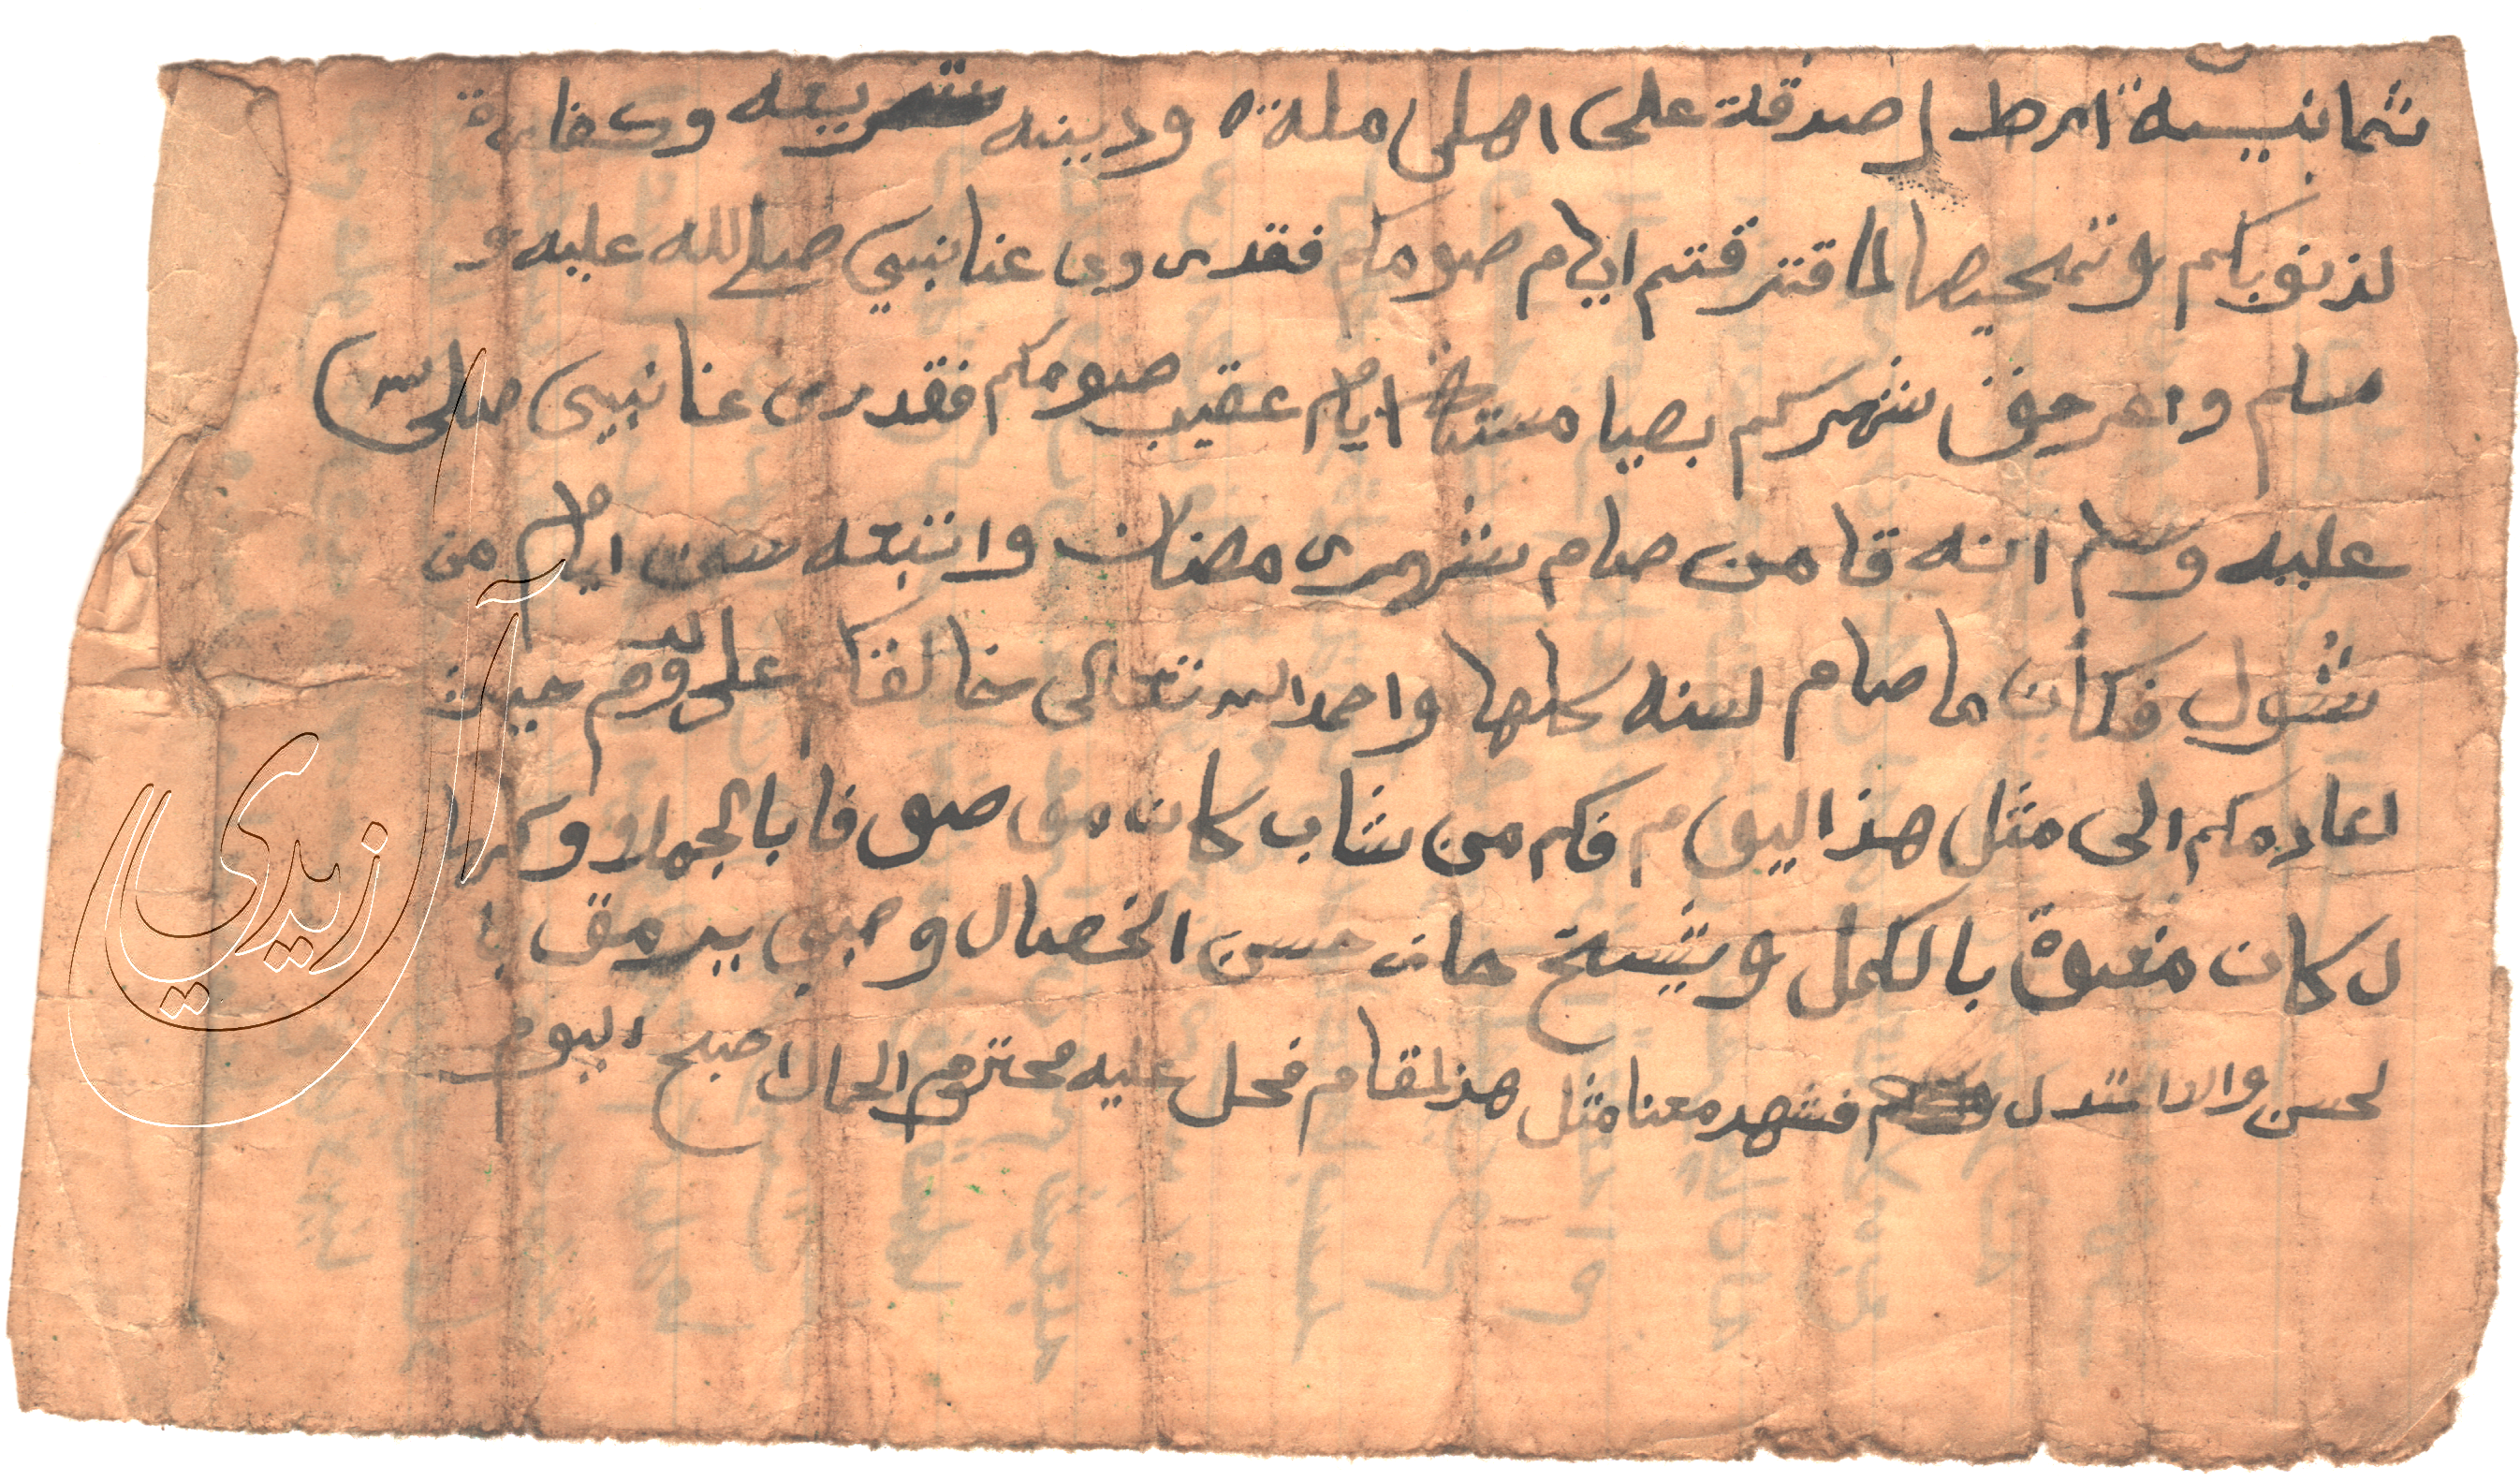 ثمانيسة ارطل صدقة على اهلى ملة ودينه شريعه وكفارة
لذنوبكم وتمحيصا لما قترقتم ايام صومكم فقدروى عنا نبيي صلى الله عليه و
سلم واهر جون شهركم بصيا مستة ايام عقيب صومكم فقدرى عنا نبيى صلى الله
عليه وسلم انه قا من صام شهررمضان واتبعه ست ايام من
شول فكأن ما صام لسنه كلها واحمد الله تعالى خالقكم على قدومه حيث
اعادمكم الى مثل هذا اليوم فكم من شاب كان موصوفا بالجملاو وكهل
ل كان منعوة بالكمل وشيخ حان حسن الخصال وصبي يرمق با
لحسن والاعتدل فشهد معنا مثل هذلمقام فحل عليه محتزم الحمان اصبح اليوم
آل زيدي